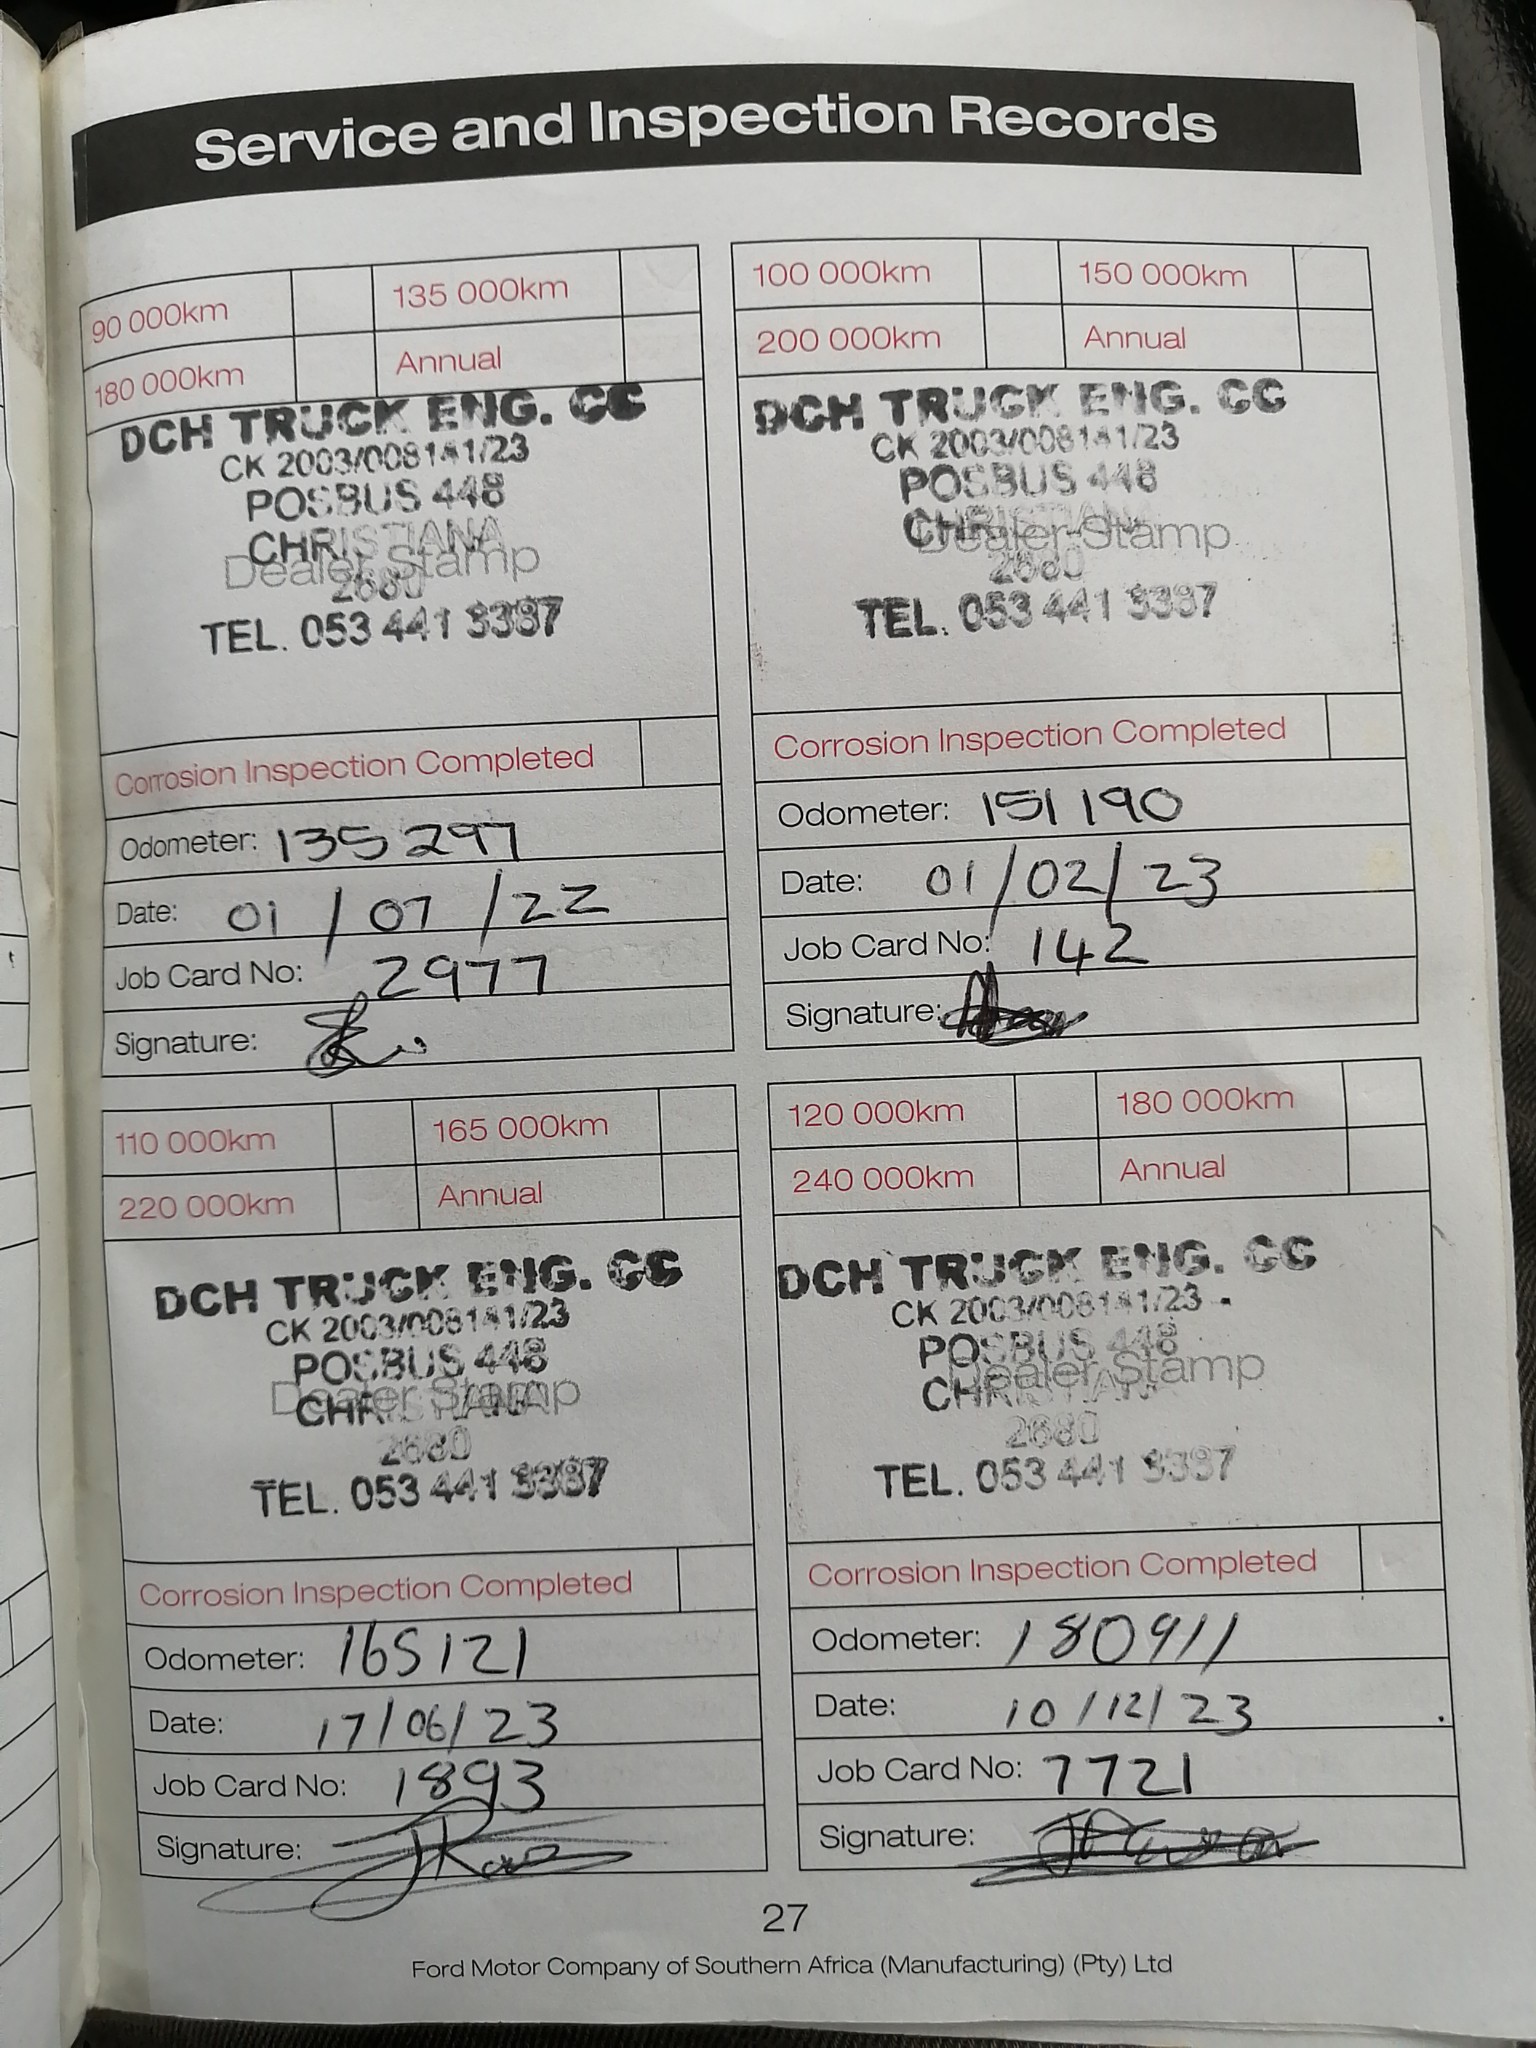 Service and Inspection Records
90 000km 135 000km
180 000km Annual
DCH TRUCK ENG. CC
CK 2003/008141/23
POSBUS 448
CHRISTIANA
Dealer Stamp
2680
TEL. 053 441 3387
Corrosion Inspection Completed
Odometer: 135 297
Date: 01 / 07 / 22
Job Card No: 2977
Signature:
100 000km 150 000km
200 000km Annual
DCH TRUCK ENG. CC
CK 2003/008141/23
POSBUS 448
CHRISTIANA
Dealer Stamp
2680
TEL. 053 441 3387
Corrosion Inspection Completed
Odometer: 151 190
Date: 01 / 02 / 23
Job Card No: 142
Signature:
110 000km 165 000km
220 000km Annual
DCH TRUCK ENG. CC
CK 2003/008141/23
POSBUS 448
Dealer Stamp
CHRISTIANA
2680
TEL. 053 441 3387
Corrosion Inspection Completed
Odometer: 165121
Date: 17/06/23
Job Card No: 1893
Signature:
120 000km 180 000km
240 000km Annual
DCH TRUCK ENG. CC
CK 2003/008141/23
POSBUS 448
Dealer Stamp
CHRISTIANA
2680
TEL. 053 441 3387
Corrosion Inspection Completed
Odometer: 180911
Date: 10/12/23
Job Card No: 7721
Signature:
27
Ford Motor Company of Southern Africa (Manufacturing) (Pty) Ltd